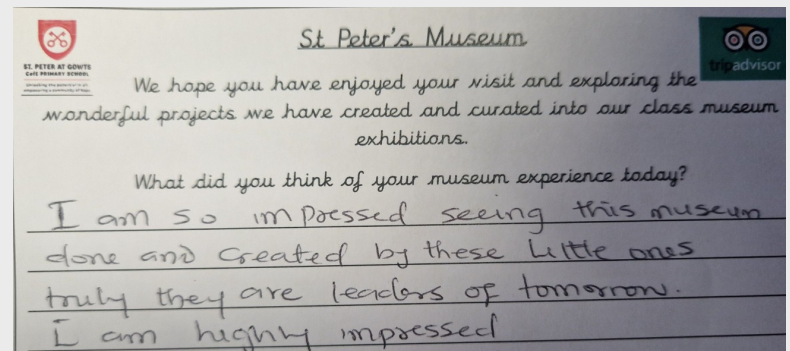 St Peter's Museum
ST. PETER AT GOWTS
CofE PRIMARY SCHOOL
tripadvisor
We hope you have enjoyed your visit and exploring the
wonderful projects we have created and curated into our class museum
exhibitions.
What did you think of your museum experience today?
I am so impressed seeing this museum
done and created by these little ones
truly they are leaders of tomorrow.
I am highly impressed